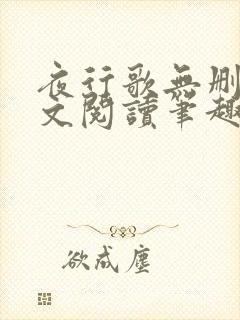 夜行歌無刪
文閱讀筆趣
欲成塵